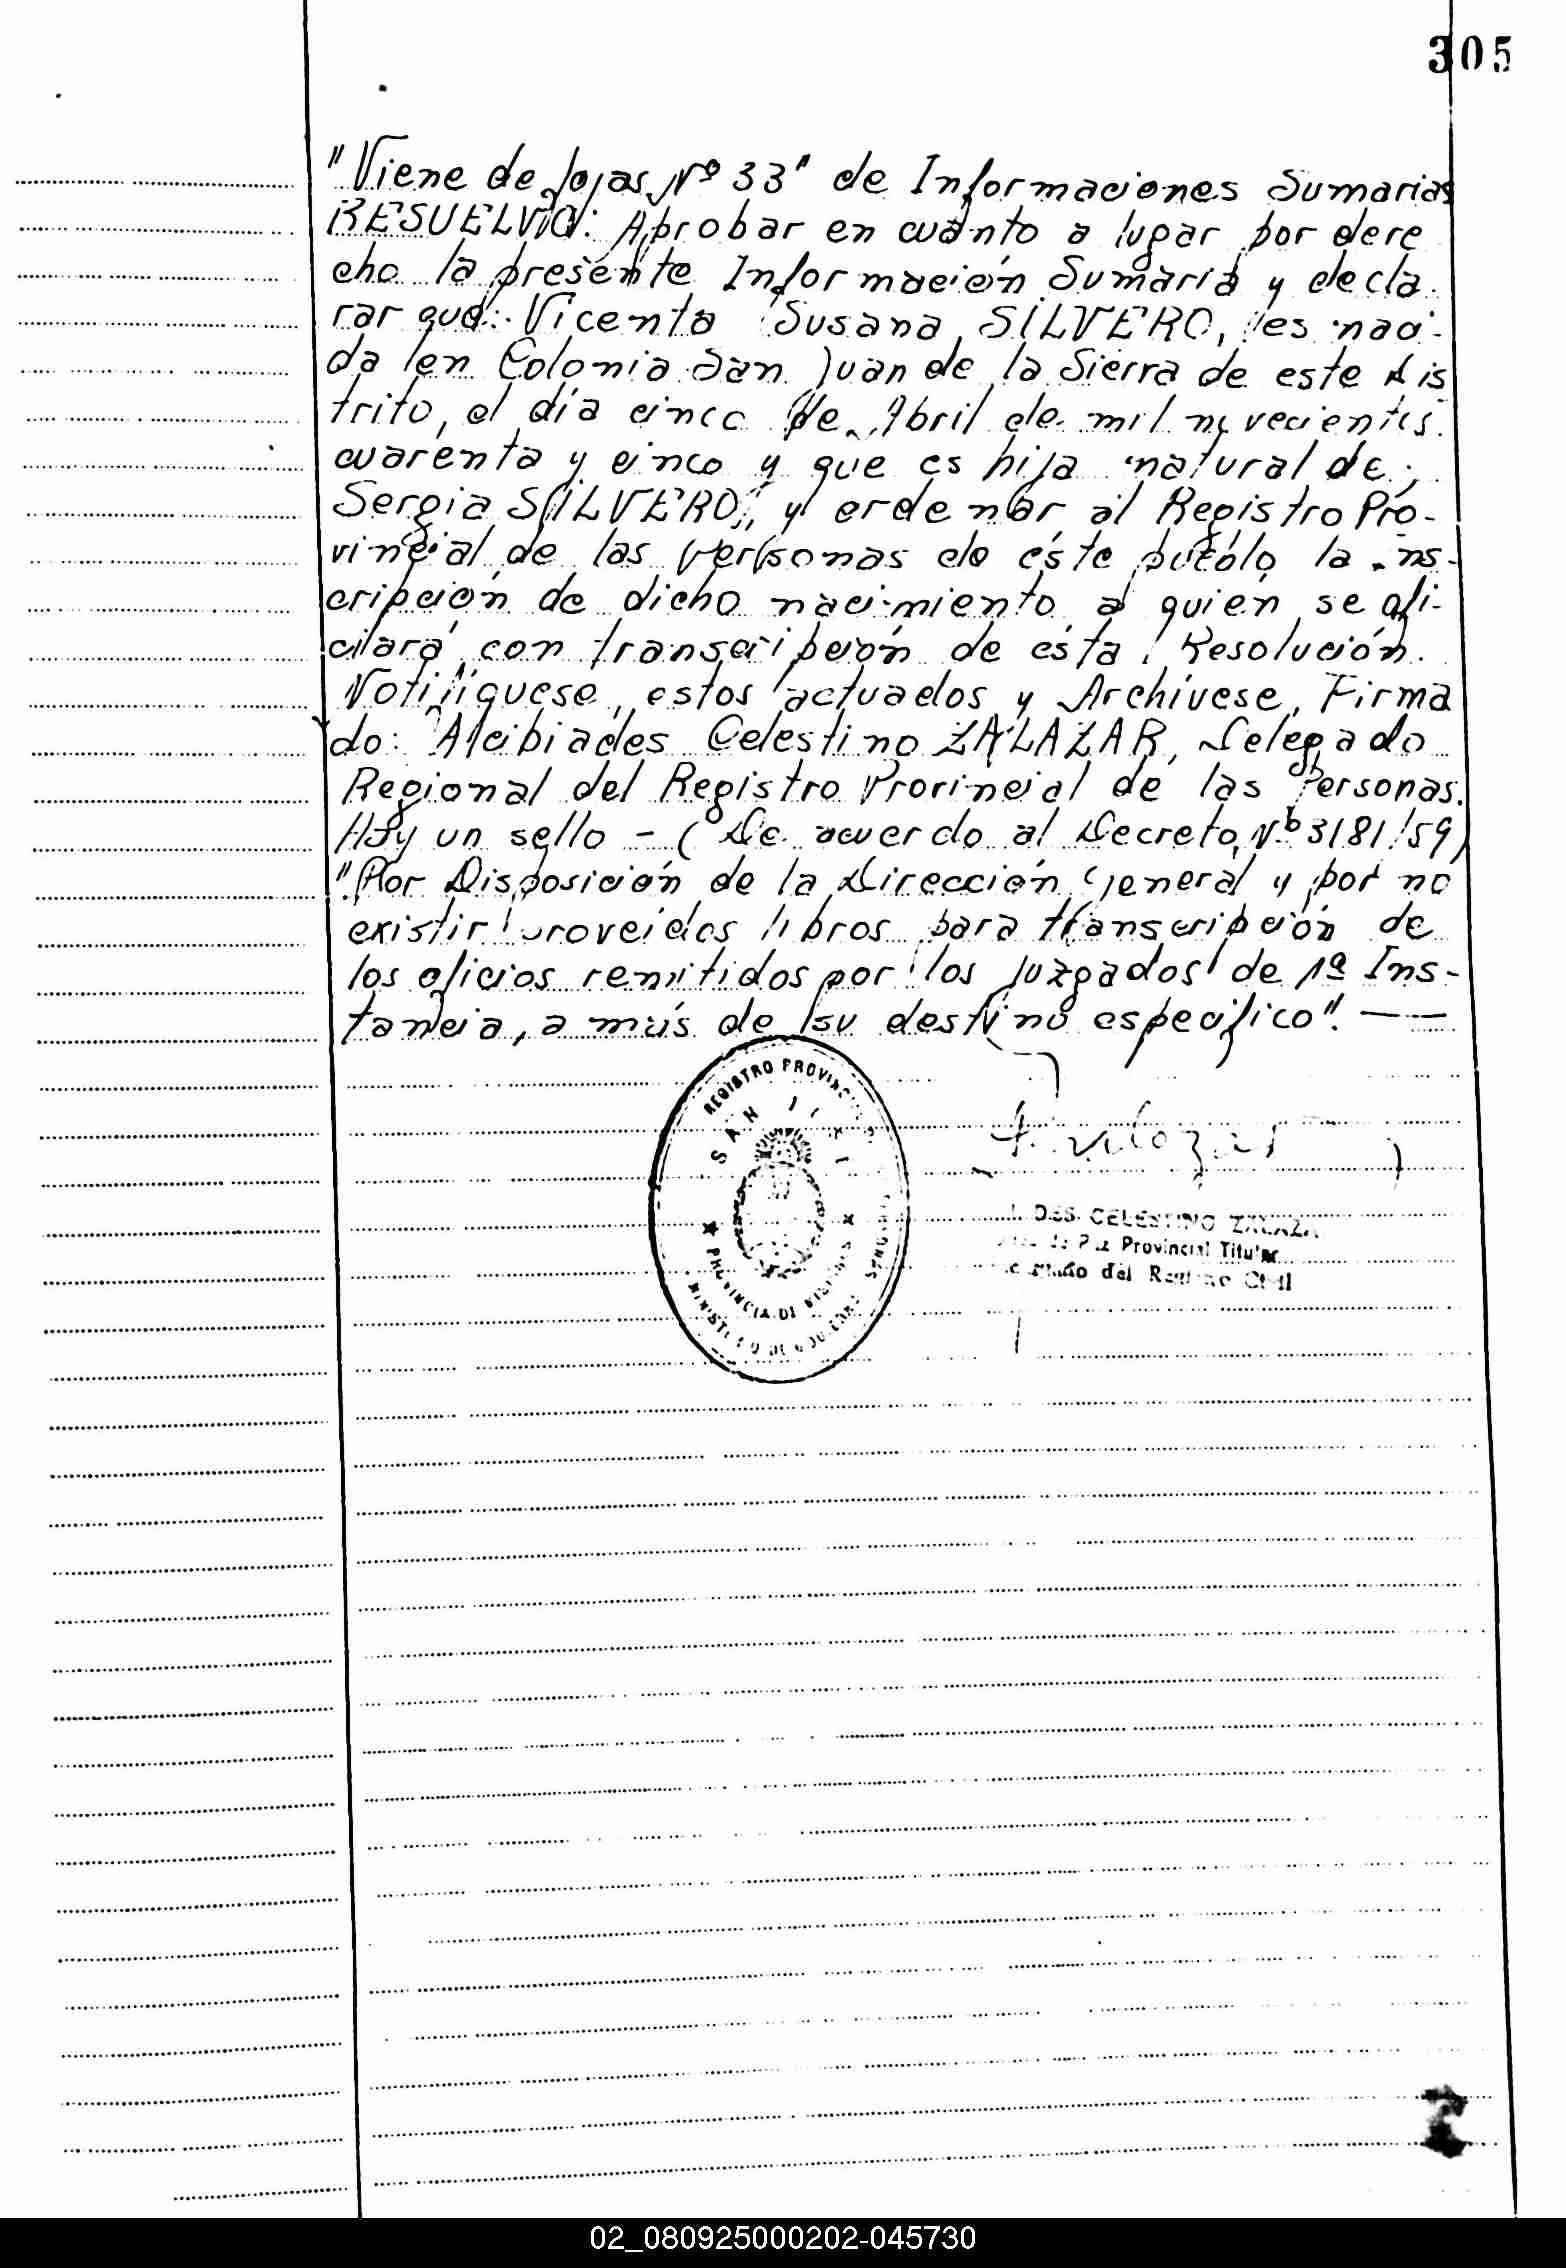 305
"Viene de fojas Nº 33" de Informaciones Sumarias
RESUELVO: Aprobar en cuanto a lugar por dere
cho la presente Información Sumaria y decla-
rar que: Vicenta Susana SILVERO, es naci-
da en Colonia San Juan de la Sierra de este Dis
trito, el día cinco de Abril de mil novecientos
cuarenta y cinco y que es hija natural de;
Sergia SILVERO, y ordenar al Registro Pro-
vincial de las Personas de éste pueblo la ins-
cripción de dicho nacimiento a quien se ofi-
ciará con transcripción de ésta Resolución.
Notifíquese estos actuados y Archívese, Firma
do: Alcibiades Celestino ZALAZAR, Delegado
Regional del Registro Provincial de las Personas.
Hay un sello - (De acuerdo al Decreto Nº 3181/59)
"Por Disposición de la Dirección General y por no
existir proveidos libros para transcripción de
los oficios remitidos por los juzgados de 1ª Ins-
tancia, a más de su destino especifico". ——
REGISTRO PROVINCIAL
SAN
PROVINCIA DE MISIONES
MINISTERIO DE GOBIERNO
CELESTINO ZALAZA
de Paz Provincial Titular
del Registro Civil
02_080925000202-045730